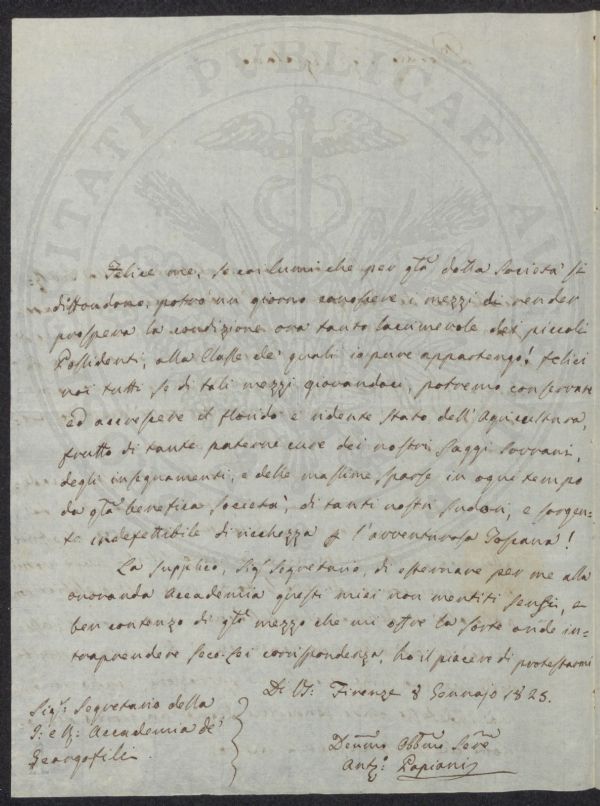 PROSPERITATI PUBLICAE AU
Felice me, se coi lumi che per qta dotta Società si
diffondono, potrò un giorno conoscere i mezzi di render
prospera la condizione ora tanto lacrimevole dei piccoli
Possidenti, alla Classe de' quali io pure appartengo! Felici
noi tutti se di tali mezzi giovandoci, potremo conservare
ed accrescere il florido e ridente stato dell'Agricoltura,
frutto di tante paterne cure dei nostri Saggi Sovrani,
degli insegnamenti, e delle massime sparse in ogni tempo
da qta benefica società, di tanti nostri sudori, e sorgen-
te indefettibile di ricchezza p l'avventurosa Toscana!
La supplico, Sigr Segretario, di esternare per me alla
onoranda Accademia questi miei non mentiti sensi, e
ben contento di qto mezzo che mi offre la sorte onde in-
traprendere seco Lei corrispondenza, ho il piacere di protestarmi
Di VS: Firenze 8 Gennajo 1825.
Sigr: Segretario della
I: e R: Accademia de'
Georgofili
Devmo Obbmo Serve
Anto: Papiani